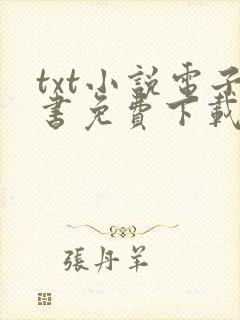 txt小説電子
書免費下載
張丹羊